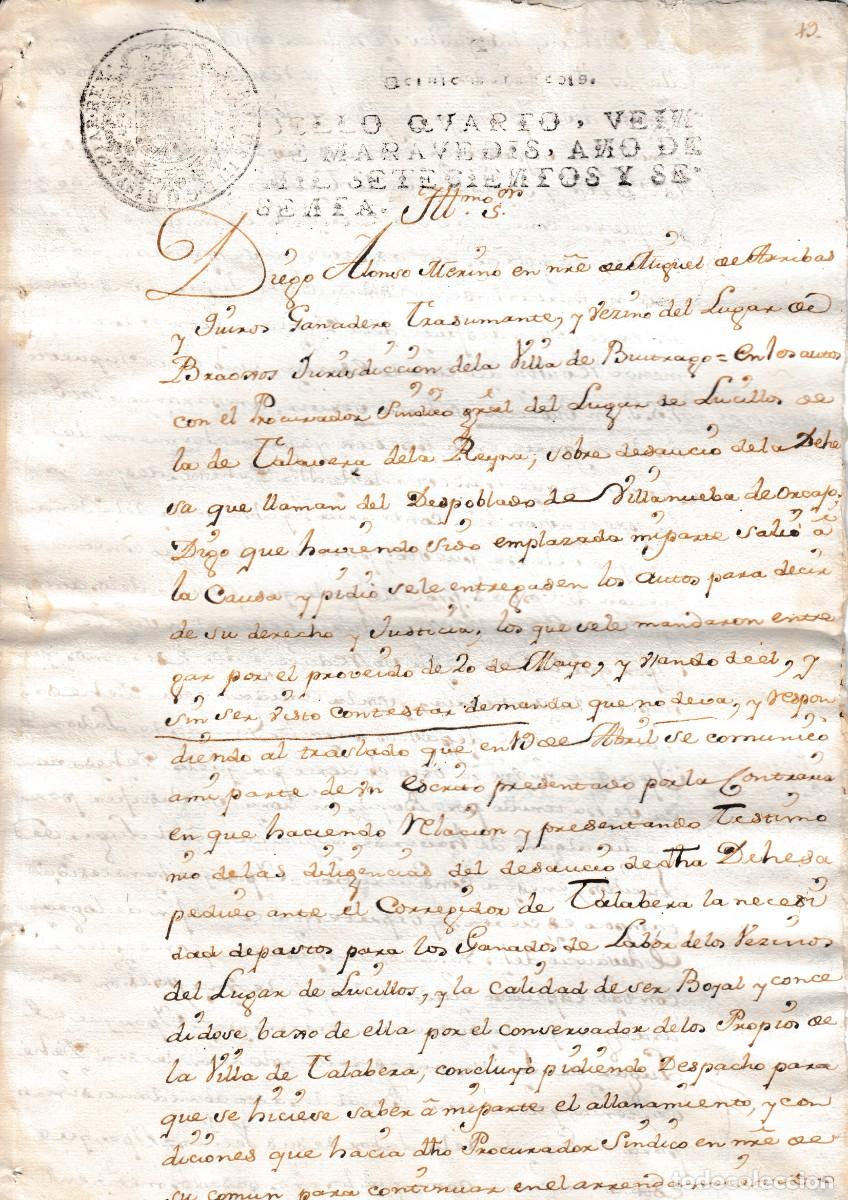 19.
SELLO QVARTO, VEIN
TE MARAVEDIS, AÑO DE
MIL SETECIENTOS Y SE-
SENTA.
Illmo. Sor.
Diego Alonso Merino en nre de Miguel de Arribas
y Quiros Ganadero Trasumante, y Vezino del Lugar de
Braoxos Jurisdiccion dela Villa de Buitrago = en los autos
con el Procurador Sindico gral del Lugar de Lucillos de
la de Talavera dela Reyna, sobre desaucio de la Dehe
sa que llaman del Despoblado de Villanueba de Orcajo,
Digo que haviendo sido emplazada mi parte salió á
la Causa y pidió sele entregasen los autos para decir
de su derecho y Justicia, los que sele mandaron entre
gar por el proveido de 20 de Mayo, y usando de él, y
sin ser visto contestar demanda que no deva, y respon
diendo al traslado que en 19 de Abril se comunicó
a mi parte de un escrito presentado por la Contraria
en que haciendo Relacion y presentando Testimo
nio de las diligencias del desaucio de dha Dehesa
pedido ante el Corregidor de Talabera la necesi
dad de pastos para los Ganados de Labor de los Vezinos
del Lugar de Lucillos, y la calidad de ser Boyal y conce
didose baxo de ella por el conservador de los Propios de
la Villa de Talabera, concluyó pidiendo Despacho para
que se hiciese saber á mi parte el allanamiento, y con
diciones que hacia dho Procurador Sindico en nre de
su comun para continuar en el arrendamiento
todocoleccion